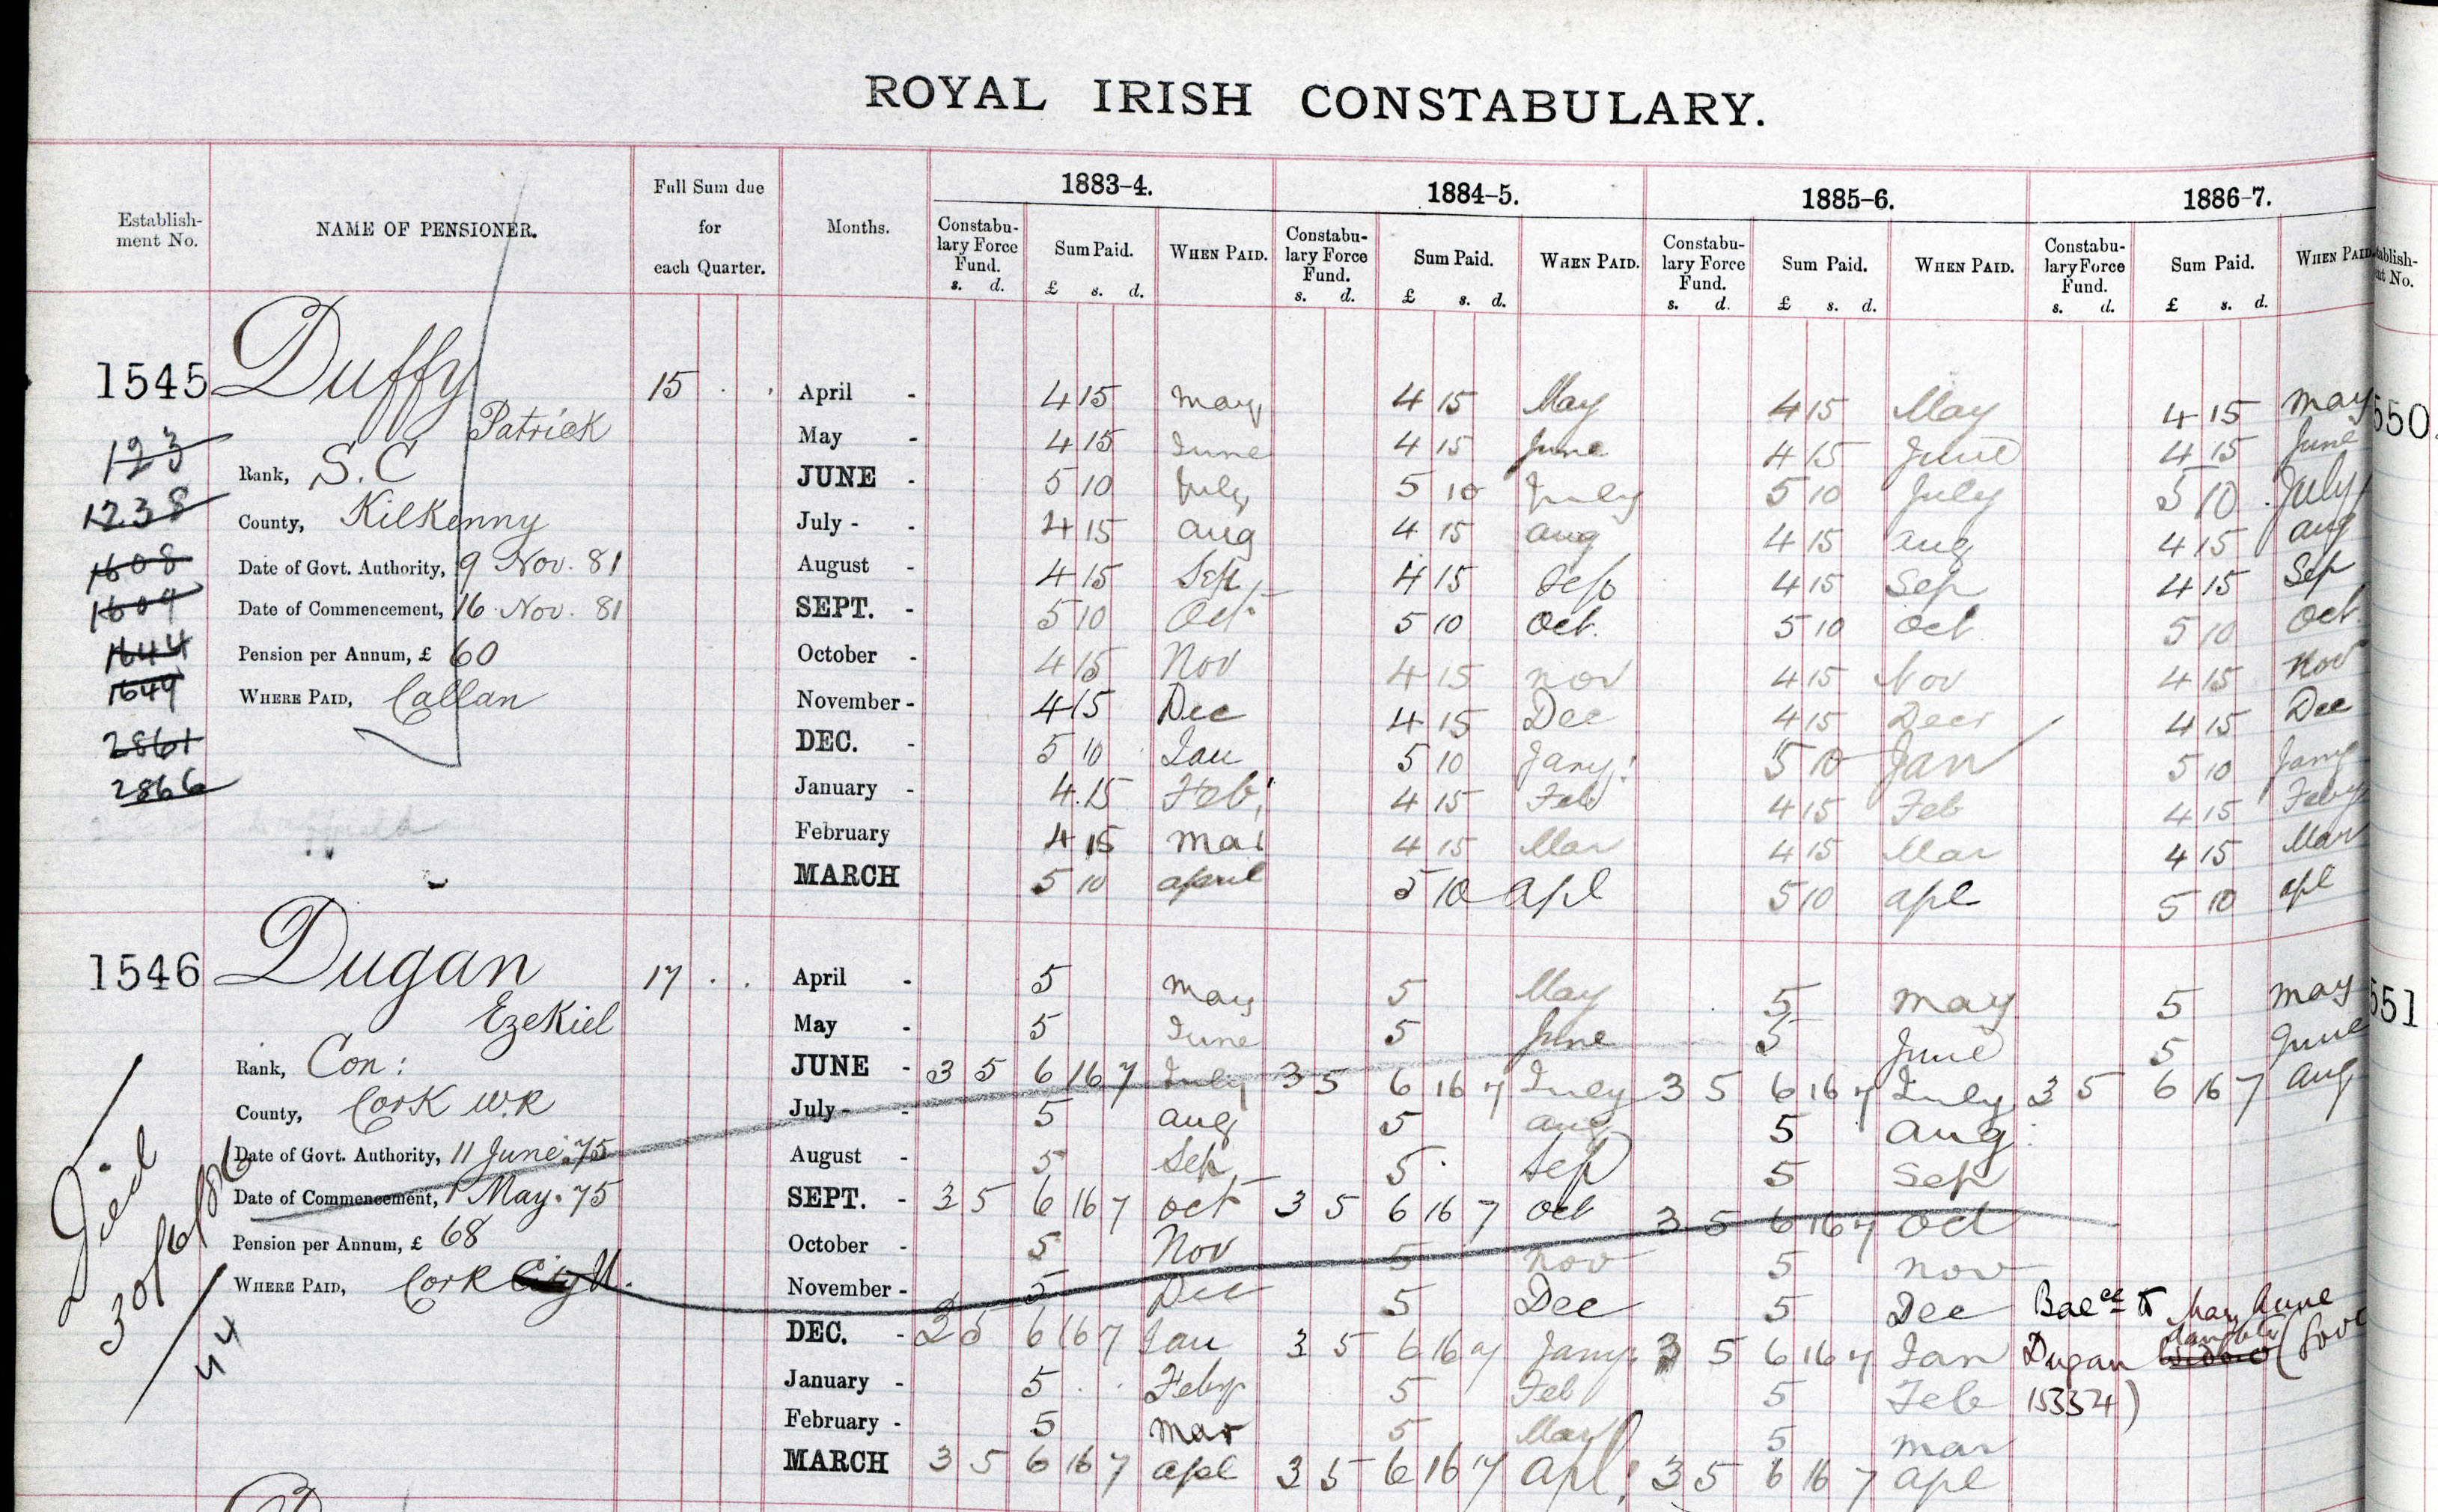 ROYAL IRISH CONSTABULARY.
Establish-ment No. NAME OF PENSIONER. Full Sum due for each Quarter. Months. 1883-4. 1884-5. 1885-6. 1886-7.
Constabu-lary Force Fund. Sum Paid. WHEN PAID. Constabu-lary Force Fund. Sum Paid. WHEN PAID. Constabu-lary Force Fund. Sum Paid. WHEN PAID. Constabu-lary Force Fund. Sum Paid. WHEN PAID.
s. d. £ s. d. s. d. £ s. d. s. d. £ s. d. s. d. £ s. d.
1545 Duffy 15 . . April - 4 15 May 4 15 May 4 15 May 4 15 May
Patrick May - 4 15 June 4 15 June 4 15 June 4 15 June
123 Rank, S.C JUNE - 5 10 July 5 10 July 5 10 July 5 10 July
1238 County, Kilkenny July - - 4 15 aug 4 15 aug 4 15 aug 4 15 aug
1608 Date of Govt. Authority, 9 Nov. 81 August - 4 15 Sep 4 15 Sep 4 15 Sep 4 15 Sep
1609 Date of Commencement, 16 Nov. 81 SEPT. - 5 10 Oct 5 10 Oct. 5 10 Oct 5 10 Oct.
1644 Pension per Annum, £ 60 October - 4 15 Nov 4 15 nov 4 15 Nov 4 15 Nov
1649 WHERE PAID, Callan November - 4 15 Dec 4 15 Dec 4 15 Decr 4 15 Dec
2861 DEC. - 5 10 Jan 5 10 Jany: 5 10 Jan 5 10 Jany
2866 January - 4.15 Feb: 4 15 Feb 4 15 Feb 4 15 Feby
February 4 15 Mar 4 15 Mar 4 15 Mar 4 15 Mar
MARCH 5 10 april 5 10 apl 5 10 apl 5 10 apl
1546 Dugan 17 . . April - 5 May 5 May 5 May 5 May
Ezekiel May - 5 June 5 June 5 June 5 June
Rank, Con: JUNE - 3 5 6 16 7 July 3 5 6 16 7 July 3 5 6 16 7 July 3 5 6 16 7 aug
County, Cork W.R July - - 5 aug 5 aug 5 aug:
Date of Govt. Authority, 11 June. 75 August - 5 Sep 5 Sep 5 Sep
Date of Commencement, 1 May. 75 SEPT. - 3 5 6 16 7 oct 3 5 6 16 7 oct 3 5 6 16 7 oct
Pension per Annum, £ 68 October - 5 Nov 5 nov 5 nov
WHERE PAID, Cork City November - 5 Dec 5 Dec 5 Dec Balce to Mary Anne
DEC. - 3 5 6 16 7 Jan 3 5 6 16 7 Jany. 3 5 6 16 7 Jan Dugan widow daughter (Govt
January - 5 . . Feby 5 Feb 5 Feb 15334)
February - 5 Mar 5 Mar 5 mar
MARCH 3 5 6 16 7 apl 3 5 6 16 7 apl: 3 5 6 16 7 apl
Died
30/6/86
44
550
551